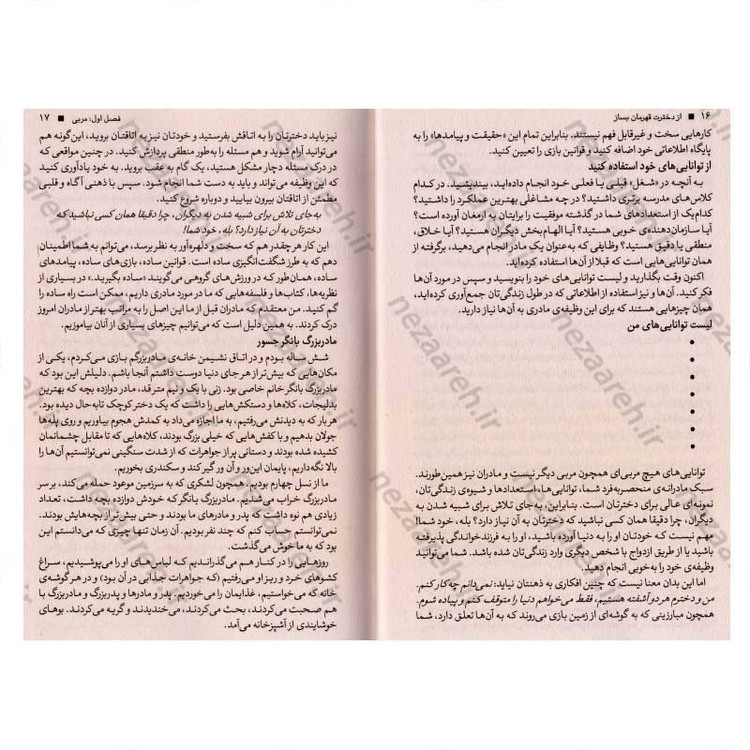 ۱۶ ■ از دخترت قهرمان بساز
کارهایی سخت و غیرقابل فهم نیستند. بنابراین تمام این «حقیقت و پیامدها» را به
پایگاه اطلاعاتی خود اضافه کنید و قوانین بازی را تعیین کنید.
از توانایی‌های خود استفاده کنید
به آنچه در «شغل» قبلی یا فعلی خود انجام داده‌اید، بیندیشید. در کدام
کلاس‌های مدرسه برتری داشتید؟ در چه مشاغلی بهترین عملکرد را داشتید؟
کدام‌یک از استعدادهای شما در گذشته موفقیت را برایتان به ارمغان آورده است؟
آیا سازمان‌دهنده‌ی خوبی هستید؟ آیا الهام‌بخش دیگران هستید؟ آیا خلاق،
منطقی یا دقیق هستید؟ وظایفی که به‌عنوان یک مادر انجام می‌دهید، برگرفته از
همان توانایی‌هایی است که قبلا از آن‌ها استفاده کرده‌اید.
اکنون وقت بگذارید و لیست توانایی‌های خود را بنویسید و سپس در مورد آن‌ها
فکر کنید. آن‌ها و نیز استفاده از اطلاعاتی که در طول زندگی‌تان جمع‌آوری کرده‌اید،
همان چیزهایی هستند که برای این وظیفه‌ی مادری به آن‌ها نیاز دارید.
لیست توانایی‌های من
•
•
•
•
•
•
•
توانایی‌های هیچ مربی‌ای همچون مربی دیگر نیست و مادران نیز همین‌طورند.
سبک مادرانه‌ی منحصربه‌فرد شما، توانایی‌ها، استعدادها و شیوه‌ی زندگی‌تان،
نمونه‌ای عالی برای دخترتان است. بنابراین، به‌جای تلاش برای شبیه شدن به
دیگران، چرا دقیقا همان کسی نباشید که دخترتان به آن نیاز دارد؟ بله، خود شما!
مهم نیست که خودتان او را به دنیا آورده باشید، او را به فرزندخواندگی پذیرفته
باشید یا از طریق ازدواج با شخص دیگری وارد زندگی‌تان شده باشد. شما می‌توانید
وظیفه‌ی خود را به‌خوبی انجام دهید.
اما این بدان معنا نیست که چنین افکاری به ذهنتان نیاید: نمی‌دانم چه کار کنم.
من و دخترم هر دو آشفته هستیم، فقط می‌خواهم دنیا را متوقف کنم و پیاده شوم.
همچون مبارزینی که به گوشه‌ای از زمین بازی می‌روند که به آن‌ها تعلق دارد، شما
فصل اول: مربی ■ ۱۷
نیز باید دخترتان را به اتاقش بفرستید و خودتان نیز به اتاقتان بروید، این‌گونه هم
می‌توانید آرام شوید و هم مسئله را به‌طور منطقی پردازش کنید. در چنین مواقعی که
در درک مسئله دچار مشکل هستید، یک گام به عقب بروید. به خود یادآوری کنید
که این وظیفه می‌تواند و باید به دست شما انجام شود. سپس با ذهنی آگاه و قلبی
مطمئن از اتاقتان بیرون بیایید و دوباره شروع کنید.
به‌جای تلاش برای شبیه شدن به دیگران، چرا دقیقا همان کسی نباشید که
دخترتان به آن نیاز دارد؟ بله، خود شما!
این کار هر چقدر هم که سخت و دلهره‌آور به نظر برسد، می‌توانم به شما اطمینان
دهم که به طرز شگفت‌انگیزی ساده است. قوانین ساده، بازی‌های ساده، پیامدهای
ساده، همان‌طور که در ورزش‌های گروهی می‌گویند «ساده بگیرید.» در بسیاری از
نظریه‌ها، کتاب‌ها و فلسفه‌هایی که ما در مورد مادری داریم، ممکن است راه ساده را
گم کنید. من معتقدم که مادران قبل از ما این اصل را به مراتب بهتر از مادران امروز
درک کردند. به همین دلیل است که می‌توانیم چیزهای بسیاری از آنان بیاموزیم.
مادربزرگ بانگر جسور
شش ساله بودم و در اتاق نشیمن خانه‌ی مادربزرگم بازی می‌کردم، یکی از
مکان‌هایی که بیش‌تر از هر جای دنیا دوست داشتم آنجا باشم. دلیلش این بود که
مادربزرگ بانگر خانم خاصی بود. زنی با یک و نیم متر قد، مادر دوازده بچه که بهترین
بدلیجات، کلاه‌ها و دستکش‌هایی را داشت که یک دختر کوچک تابه‌حال دیده بود.
هر بار که به دیدنش می‌رفتیم، به ما اجازه می‌داد به کمدش هجوم بیاوریم و روی پله‌ها
جولان بدهیم و با کفش‌هایی که خیلی بزرگ بودند، کلاه‌هایی که تا مقابل چشمانمان
کشیده شده بودند و دستانی پر از جواهرات که از شدت سنگینی نمی‌توانستیم آن‌ها را
بالا نگه‌داریم، پایمان این‌ور و آن ور گیر کند و سکندری بخوریم.
ما از نسل چهارم بودیم. همچون لشکری که به سرزمین موعود حمله می‌کند، بر سر
مادربزرگ خراب می‌شدیم. مادربزرگ بانگر که خودش دوازده بچه داشت، تعداد
زیادی هم نوه داشت که پدر و مادرهای ما بودند و حتی بیش‌تر از بچه‌هایش بودند.
نمی‌توانستم حساب کنم که چند نفر بودیم. آن زمان تنها چیزی که می‌دانستم این
بود که به ما خوش می‌گذشت.
روزهایی را در کنار هم بودیم که لباس‌های او را می‌پوشیدیم، سراغ
کشوهای خرد و ریز او می‌رفتیم (که جواهرات جذابی در آن بود) و در هر گوشه‌ی
خانه گه می‌خواستیم، غذایمان را می‌خوردیم. پدر و مادرها و پدربزرگ و مادربزرگ با
هم صحبت می‌کردند، بحث می‌کردند، می‌خندیدند و گریه می‌کردند. بوهای
خوشایندی از آشپزخانه می‌آمد.
nezaareh.ir